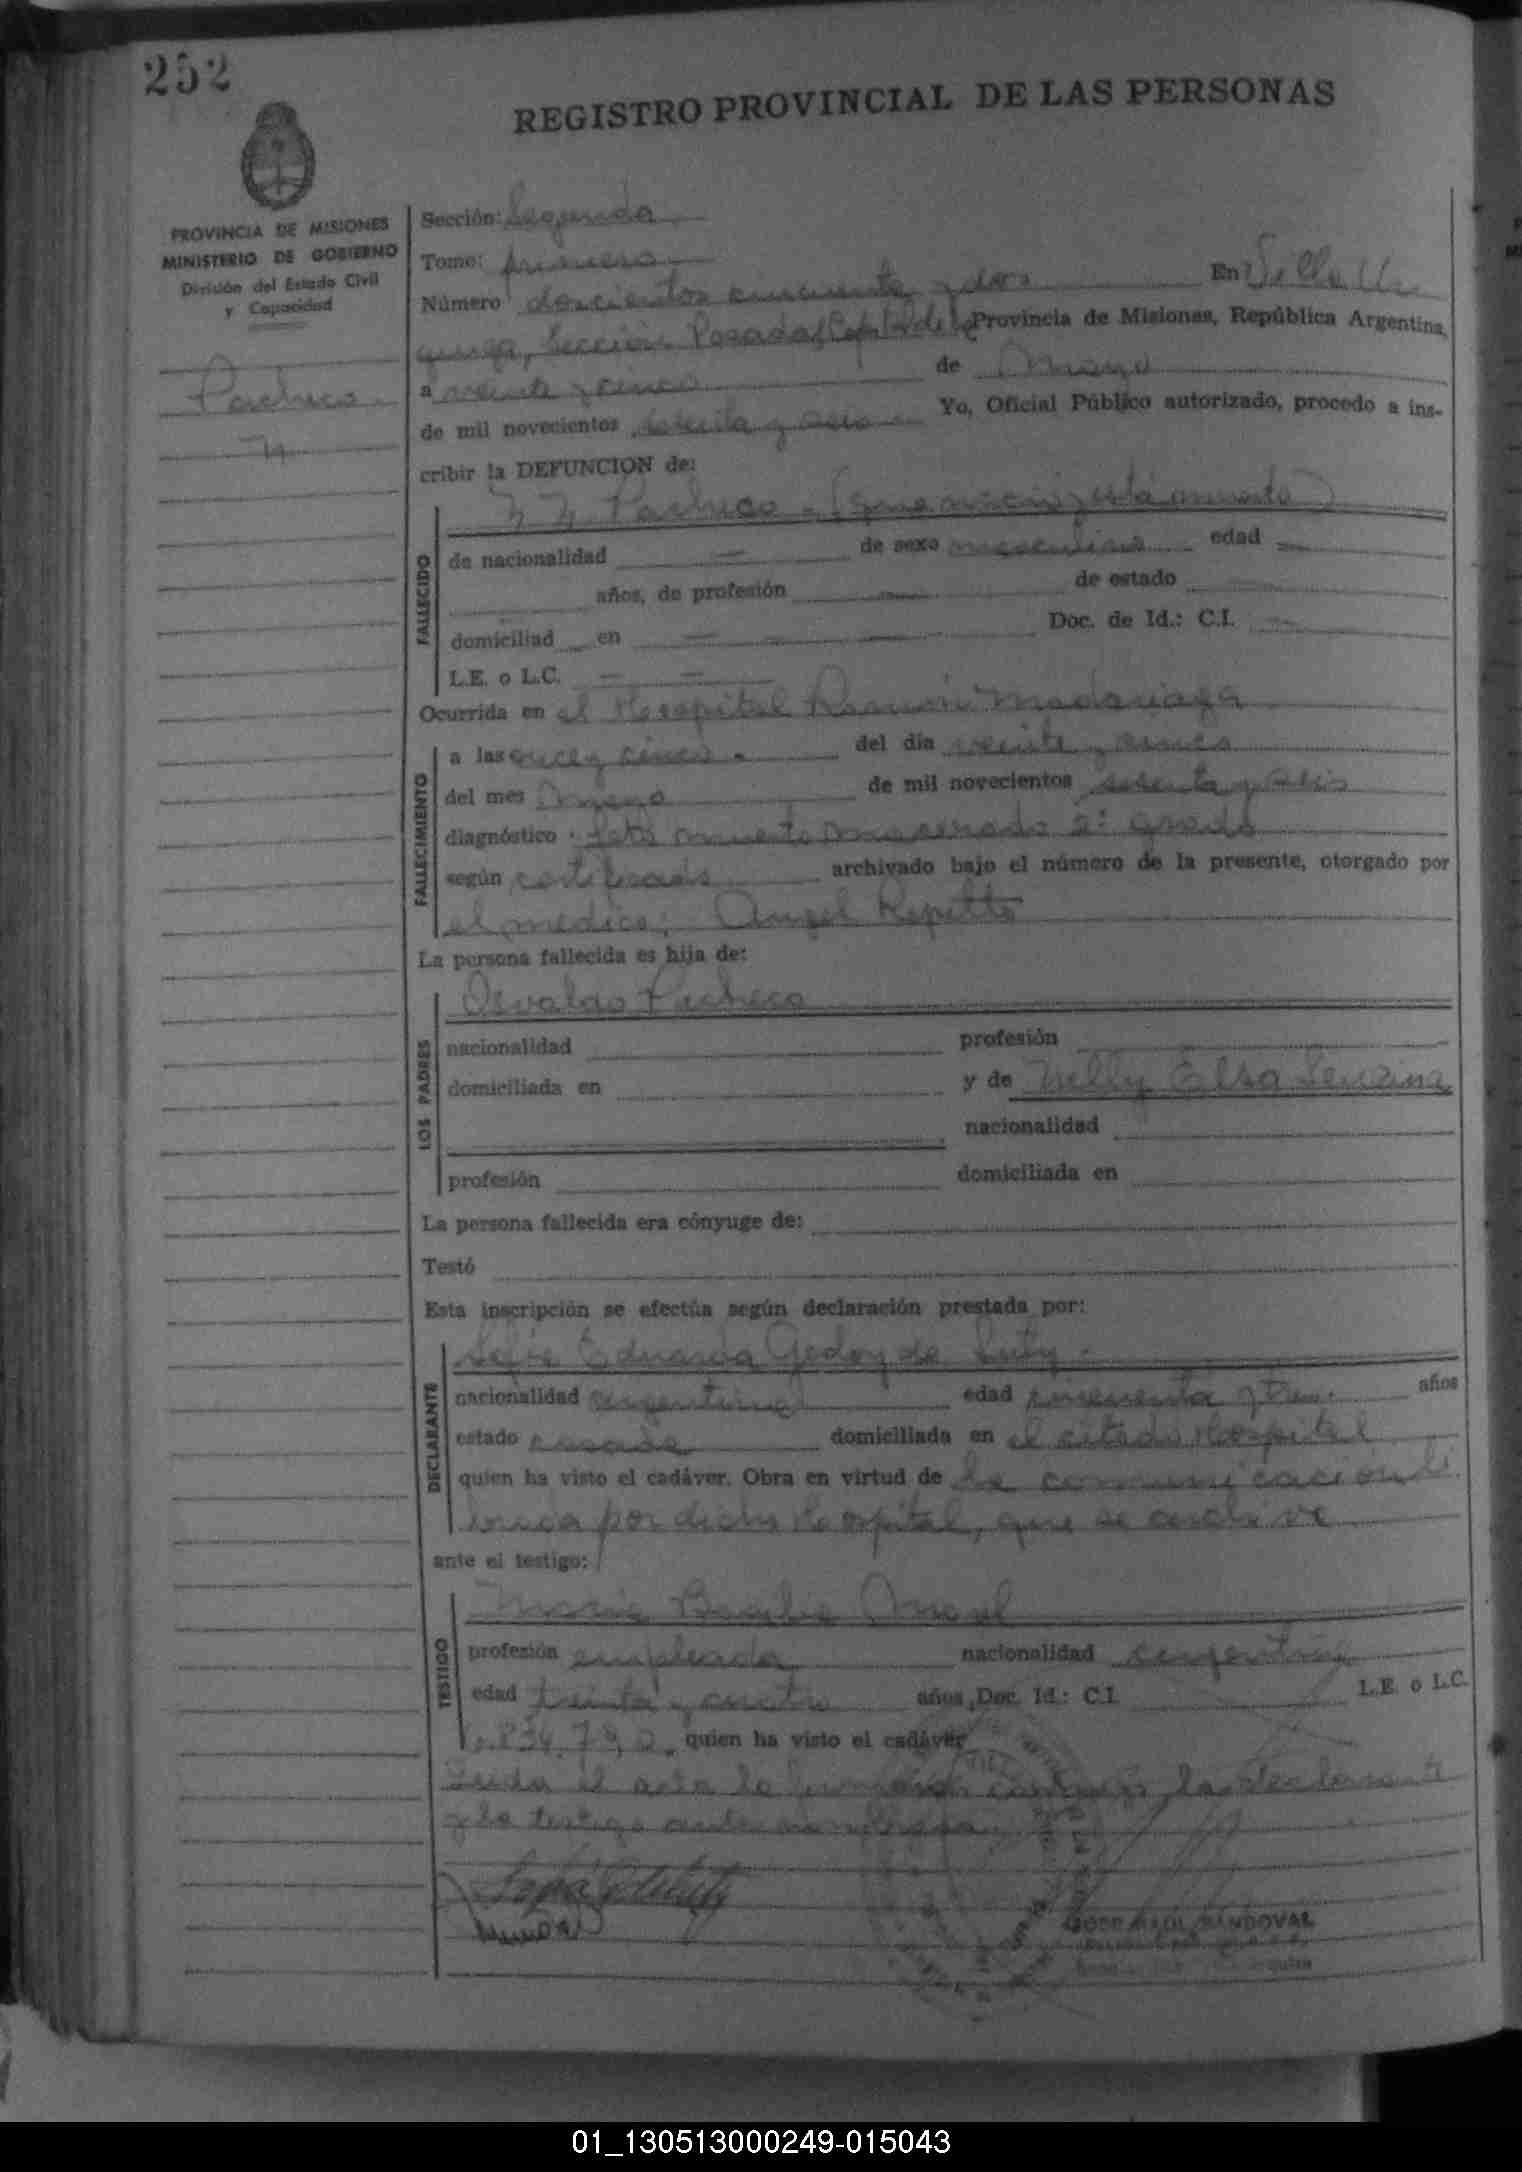 252
REGISTRO PROVINCIAL DE LAS PERSONAS
PROVINCIA DE MISIONES
MINISTERIO DE GOBIERNO
División del Estado Civil
y Capacidad
Pacheco
Sección: Segunda
Tomo: primero
Número doscientos cincuenta y dos En Villa Ur
quiza, Sección Posadas, Capital de la Provincia de Misiones, República Argentina,
a veinte y cinco de Mayo
de mil novecientos setenta y seis Yo, Oficial Público autorizado, procedo a ins-
cribir la DEFUNCION de:
N N Pacheco (que nació y está muerto)
FALLECIDO
de nacionalidad — de sexo masculino edad —
años, de profesión — de estado
domiciliad en — Doc. de Id.: C.I. —
L.E. o L.C. — —
Ocurrida en el Hospital Ramón Madariaga
FALLECIMIENTO
a las once y cinco del día veinte y cinco
del mes Mayo de mil novecientos setenta y seis
diagnóstico feto muerto macerado 2º grado
según certificado archivado bajo el número de la presente, otorgado por
el medico: Angel Repetto
La persona fallecida es hija de:
LOS PADRES
Osvaldo Pacheco
nacionalidad profesión
domiciliada en y de Nelly Elsa
nacionalidad
profesión domiciliada en
La persona fallecida era cónyuge de:
Testó
Esta inscripción se efectúa según declaración prestada por:
DECLARANTE
Eduarda Godoy de
nacionalidad argentina edad cincuenta y tres años
estado casada domiciliada en el citado Hospital
quien ha visto el cadáver. Obra en virtud de la comunicación li
brada por dicho Hospital, que se archiva
ante el testigo:
TESTIGO
María
profesión empleada nacionalidad argentina
edad treinta y cuatro años, Doc. Id.: C.I. L.E. o L.C.
quien ha visto el cadáver
Leida el acta la firman la declarante
y la testigo ante mi
JOSE RAUL SANDOVAL
01_130513000249-015043